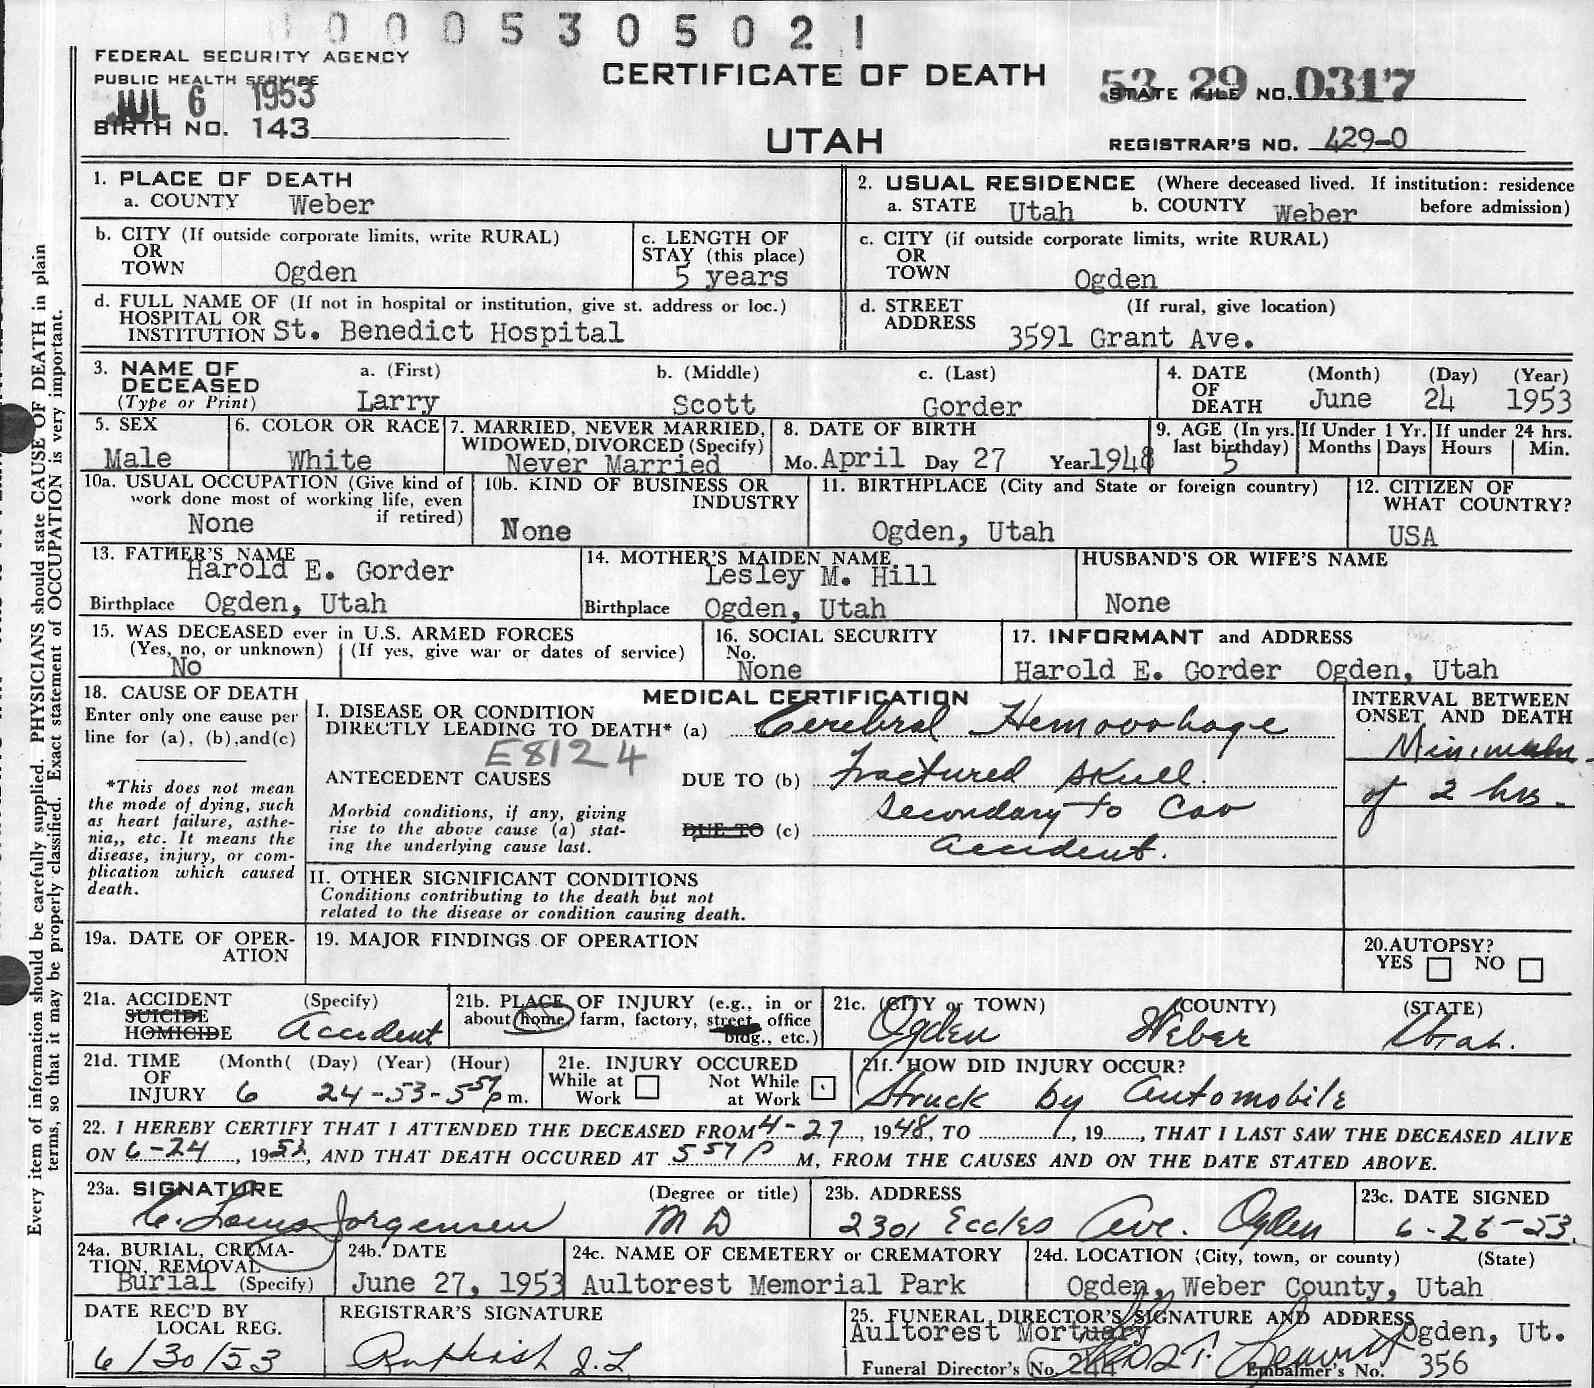 0005305021
FEDERAL SECURITY AGENCY
PUBLIC HEALTH SERVICE
JUL 6 1953
BIRTH NO. 143
CERTIFICATE OF DEATH
UTAH
53 29 0317
STATE FILE NO.
REGISTRAR'S NO. 429-0
Every item of information should be carefully supplied. PHYSICIANS should state CAUSE OF DEATH in plain
terms, so that it may be properly classified. Exact statement of OCCUPATION is very important.
1. PLACE OF DEATH
a. COUNTY Weber
2. USUAL RESIDENCE (Where deceased lived. If institution: residence
a. STATE Utah b. COUNTY Weber before admission)
b. CITY (If outside corporate limits, write RURAL)
OR
TOWN Ogden
c. LENGTH OF
STAY (this place)
5 years
c. CITY (if outside corporate limits, write RURAL)
OR
TOWN Ogden
d. FULL NAME OF (If not in hospital or institution, give st. address or loc.)
HOSPITAL OR
INSTITUTION St. Benedict Hospital
d. STREET (If rural, give location)
ADDRESS
3591 Grant Ave.
3. NAME OF
DECEASED
(Type or Print)
a. (First) b. (Middle) c. (Last)
Larry Scott Gorder
4. DATE (Month) (Day) (Year)
OF
DEATH June 24 1953
5. SEX
Male
6. COLOR OR RACE
White
7. MARRIED, NEVER MARRIED,
WIDOWED, DIVORCED (Specify)
Never Married
8. DATE OF BIRTH
Mo. April Day 27 Year 1948
9. AGE (In yrs.
last birthday)
5
If Under 1 Yr.
Months Days
If under 24 hrs.
Hours Min.
10a. USUAL OCCUPATION (Give kind of
work done most of working life, even
if retired)
None
10b. KIND OF BUSINESS OR
INDUSTRY
None
11. BIRTHPLACE (City and State or foreign country)
Ogden, Utah
12. CITIZEN OF
WHAT COUNTRY?
USA
13. FATHER'S NAME
Harold E. Gorder
Birthplace Ogden, Utah
14. MOTHER'S MAIDEN NAME
Lesley M. Hill
Birthplace Ogden, Utah
HUSBAND'S OR WIFE'S NAME
None
15. WAS DECEASED ever in U.S. ARMED FORCES
(Yes, no, or unknown) (If yes, give war or dates of service)
No
16. SOCIAL SECURITY
No.
None
17. INFORMANT and ADDRESS
Harold E. Gorder Ogden, Utah
18. CAUSE OF DEATH
Enter only one cause per
line for (a), (b),and(c)
*This does not mean
the mode of dying, such
as heart failure, asthe-
nia,, etc. It means the
disease, injury, or com-
plication which caused
death.
MEDICAL CERTIFICATION
I. DISEASE OR CONDITION
DIRECTLY LEADING TO DEATH* (a) Cerebral Hemorrhage
E8124
ANTECEDENT CAUSES DUE TO (b) Fractured Skull.
Morbid conditions, if any, giving
rise to the above cause (a) stat-
ing the underlying cause last.
DUE TO (c) Secondary to Car
Accident.
INTERVAL BETWEEN
ONSET AND DEATH
Minimum
of 2 hrs.
II. OTHER SIGNIFICANT CONDITIONS
Conditions contributing to the death but not
related to the disease or condition causing death.
19a. DATE OF OPER-
ATION
19. MAJOR FINDINGS OF OPERATION
20.AUTOPSY?
YES NO
21a. ACCIDENT (Specify)
SUICIDE
HOMICIDE Accident
21b. PLACE OF INJURY (e.g., in or
about home, farm, factory, street, office
bldg., etc.)
21c. (CITY or TOWN) (COUNTY) (STATE)
Ogden Weber Utah.
21d. TIME (Month( (Day) (Year) (Hour)
OF
INJURY 6 24-53-5 57 p m.
21e. INJURY OCCURED
While at Work
Not While at Work
21f. HOW DID INJURY OCCUR?
Struck by Automobile
22. I HEREBY CERTIFY THAT I ATTENDED THE DECEASED FROM 4-27, 1948, TO , 19 , THAT I LAST SAW THE DECEASED ALIVE
ON 6-24, 1953, AND THAT DEATH OCCURED AT 5 57 P M, FROM THE CAUSES AND ON THE DATE STATED ABOVE.
23a. SIGNATURE (Degree or title)
C. Louis Jorgensen M D
23b. ADDRESS
2301 Eccles Ave. Ogden
23c. DATE SIGNED
6-26-53
24a. BURIAL, CREMA-
TION, REMOVAL
Burial (Specify)
24b. DATE
June 27, 1953
24c. NAME OF CEMETERY or CREMATORY
Aultorest Memorial Park
24d. LOCATION (City, town, or county) (State)
Ogden, Weber County, Utah
DATE REC'D BY
LOCAL REG.
6/30/53
REGISTRAR'S SIGNATURE
25. FUNERAL DIRECTOR'S SIGNATURE AND ADDRESS
Aultorest Mortuary Ogden, Ut.
Funeral Director's No. 244 Embalmer's No. 356